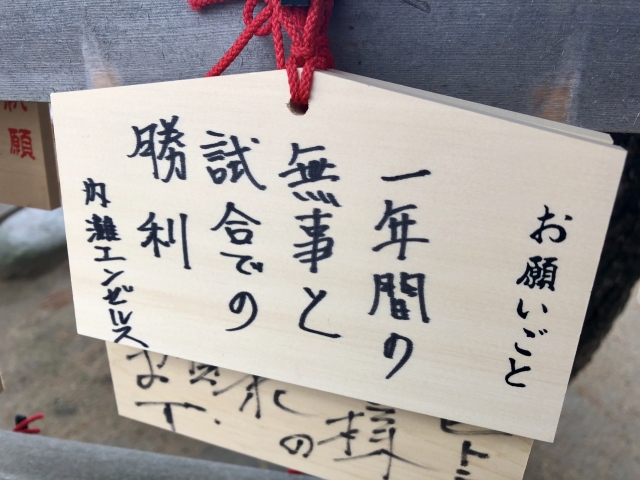 お願いごと
一年間の
無事と
試合での
勝利
内灘エンゼルス
祈願
様
の